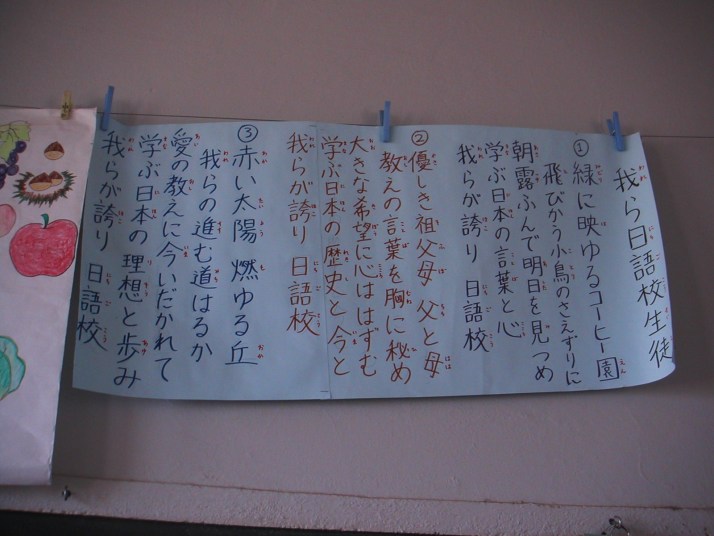 我ら日語校生徒
① 緑に映ゆるコーヒー園
飛びかう小鳥のさえずりに
朝露ふんで明日を見つめ
学ぶ日本の言葉と心
我らが誇り 日語校
② 優しき祖父母 父と母
教えの言葉を胸に秘め
大きな希望に心ははずむ
学ぶ日本の歴史と今と
我らが誇り 日語校
③ 赤い太陽 燃ゆる丘
我らの進む道はるか
愛の教えに今いだかれて
学ぶ日本の理想と歩み
我らが誇り 日語校